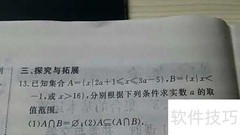 三、探究与拓展
13.已知集合A={x|2a+1≤x≤3a-5},B={x|x<
-1,或x>16},分别根据下列条件求实数a的取
值范围.
(1)A∩B=∅;(2)A⊆(A∩B).
软件技巧